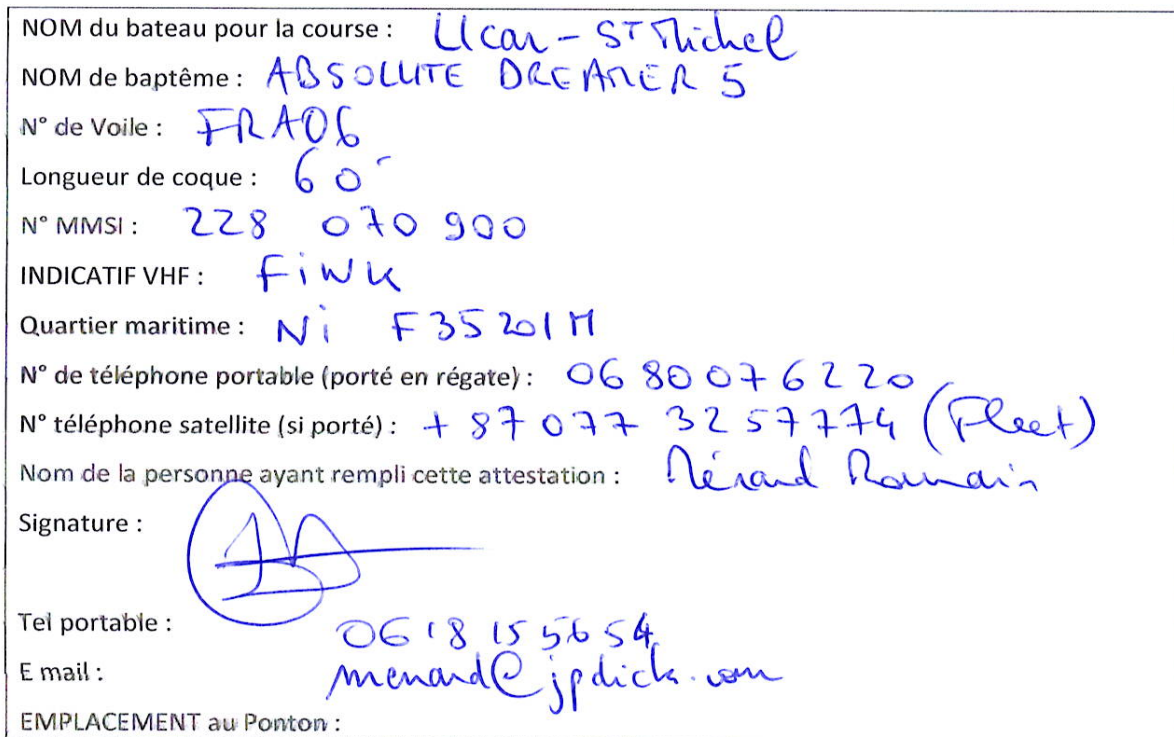 NOM du bateau pour la course : UCar - ST Michel
NOM de baptême : ABSOLUTE DREAMER 5
N° de Voile : FRA06
Longueur de coque : 60'
N° MMSI : 228 070 900
INDICATIF VHF : FiWK
Quartier maritime : Ni F35201M
N° de téléphone portable (porté en régate) : 06 80 07 62 20
N° téléphone satellite (si porté) : + 87 077 32 57 774 (Fleet)
Nom de la personne ayant rempli cette attestation : Ménard Romain
Signature :
Tel portable : 06 18 15 56 54
E mail : menard@jpdick.com
EMPLACEMENT au Ponton :